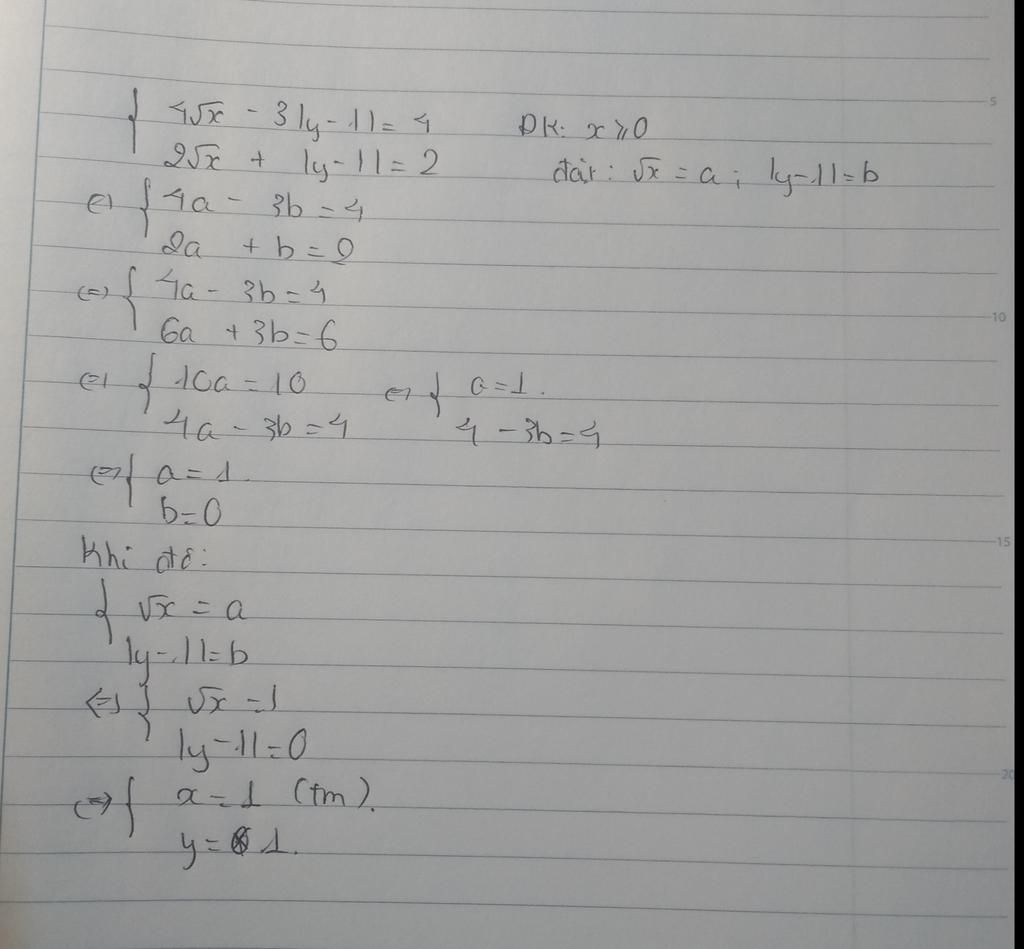 { 4√x - 3|y-1| = 4 ĐK: x ≥ 0
2√x + |y-1| = 2 đặt: √x = a; |y-1| = b
⇔ { 4a - 3b = 4
2a + b = 2
⇔ { 4a - 3b = 4
6a + 3b = 6
⇔ { 10a = 10 ⇔ { a = 1.
4a - 3b = 4 4 - 3b = 4
⇔ { a = 1.
b = 0
Khi đó:
{ √x = a
|y-1| = b
⇔ { √x = 1
|y-1| = 0
⇔ { x = 1 (tm).
y = 1.
5
10
15
20